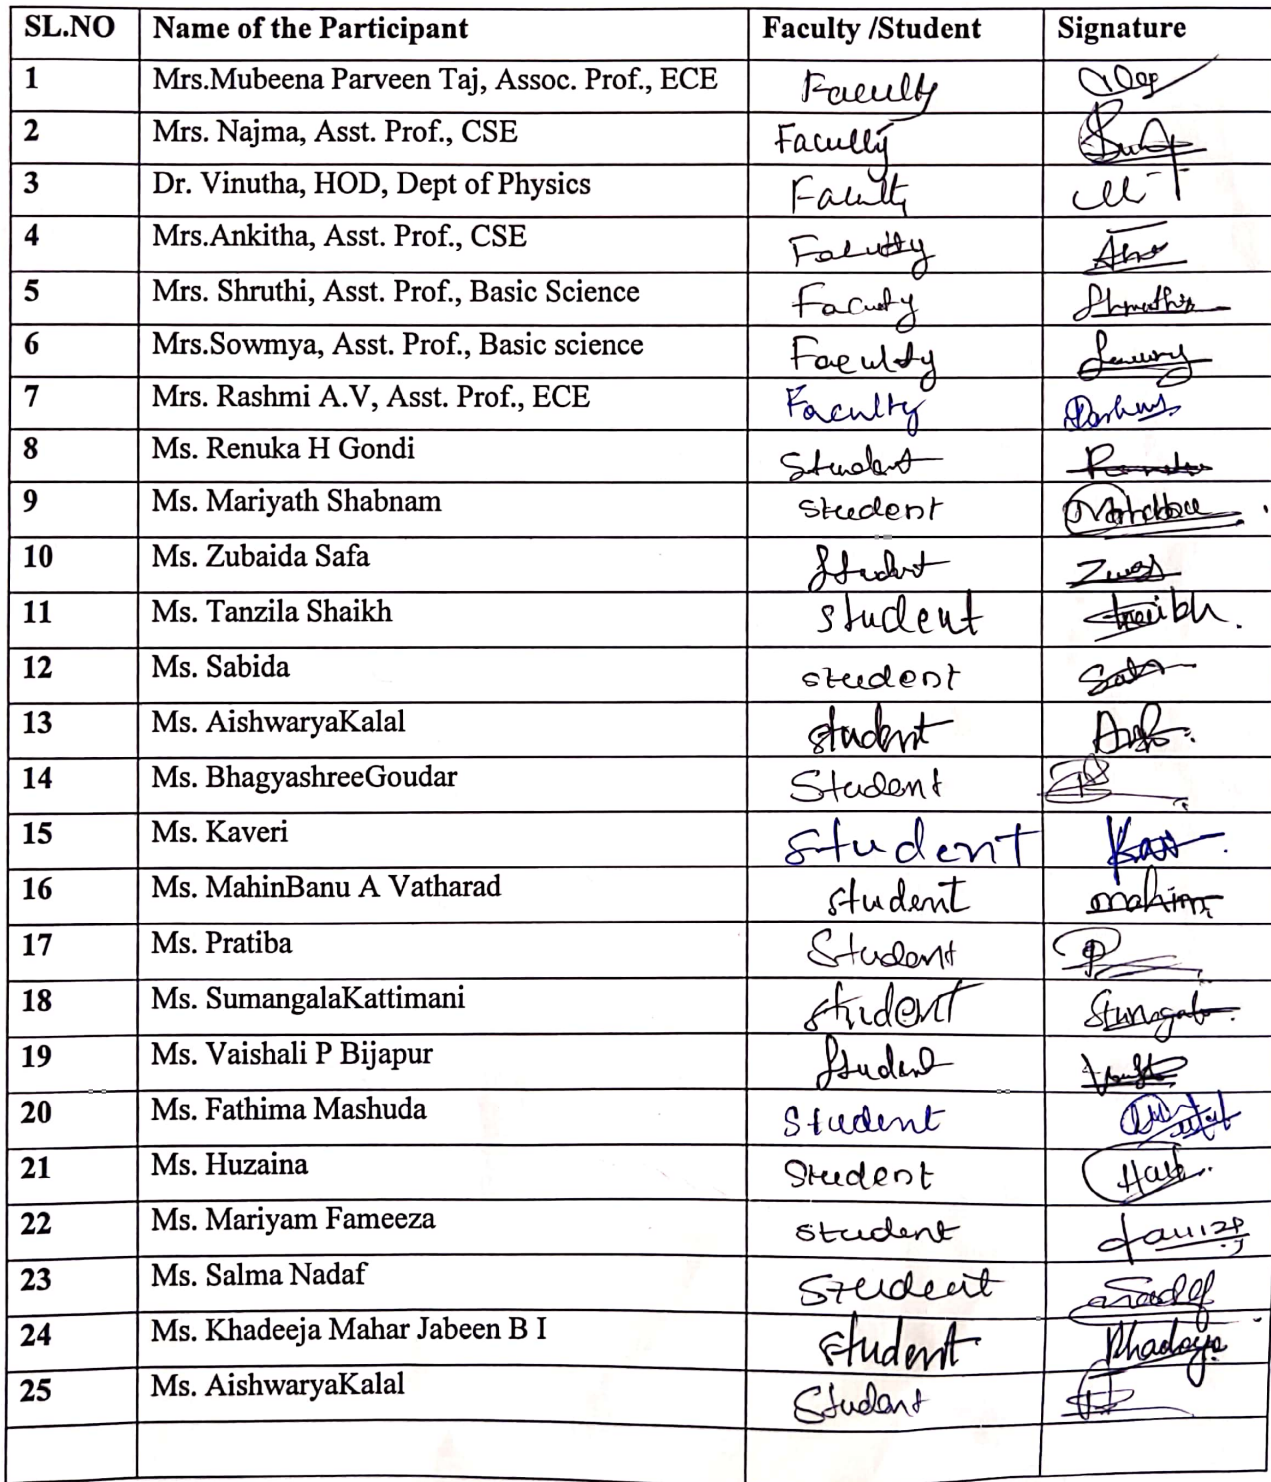 SL.NO Name of the Participant Faculty /Student Signature
1 Mrs.Mubeena Parveen Taj, Assoc. Prof., ECE Faculty
2 Mrs. Najma, Asst. Prof., CSE Faculty
3 Dr. Vinutha, HOD, Dept of Physics Faculty
4 Mrs.Ankitha, Asst. Prof., CSE Faculty
5 Mrs. Shruthi, Asst. Prof., Basic Science Faculty
6 Mrs.Sowmya, Asst. Prof., Basic science Faculty
7 Mrs. Rashmi A.V, Asst. Prof., ECE Faculty
8 Ms. Renuka H Gondi Student
9 Ms. Mariyath Shabnam student
10 Ms. Zubaida Safa Student
11 Ms. Tanzila Shaikh student
12 Ms. Sabida student
13 Ms. AishwaryaKalal student
14 Ms. BhagyashreeGoudar Student
15 Ms. Kaveri Student
16 Ms. MahinBanu A Vatharad student mahin
17 Ms. Pratiba Student
18 Ms. SumangalaKattimani student
19 Ms. Vaishali P Bijapur Student
20 Ms. Fathima Mashuda Student
21 Ms. Huzaina Student
22 Ms. Mariyam Fameeza student
23 Ms. Salma Nadaf Student
24 Ms. Khadeeja Mahar Jabeen B I student
25 Ms. AishwaryaKalal Student